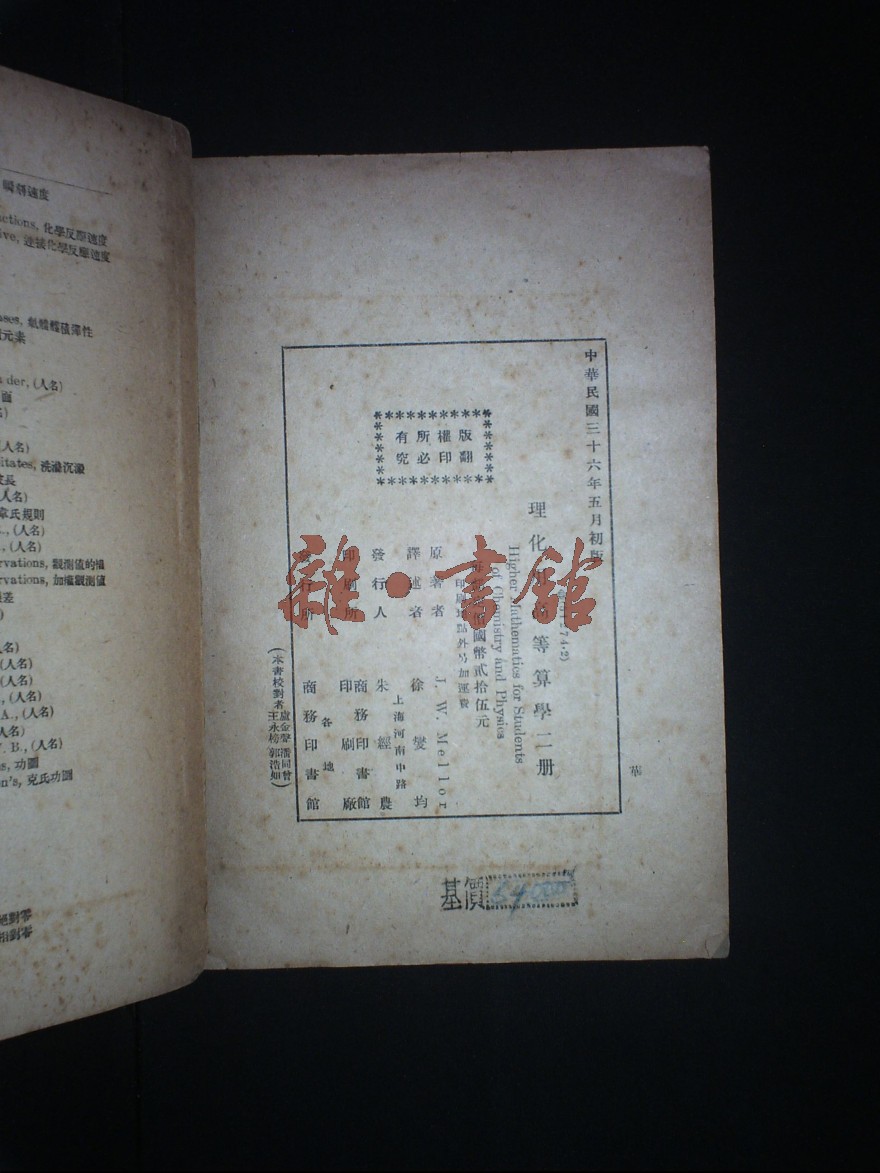 瞬刻速度
ctions, 化學反應速度
ive, 連接化學反應速度
元素
der, (人名)
面
(人名)
itates, 洗滌沉澱
波長
(人名)
章氏規則
(人名)
(人名)
rvations, 觀測值的權
rvations, 加權觀測值
差
(人名)
(人名)
(人名)
A., (人名)
(人名)
B., (人名)
功圖
n's, 克氏功圖
絕對零
相對零
中華民國三十六年五月初版
版權所有
翻印必究
理化用高等算學二冊
74·2)
Higher Mathematics for Students
of Chemistry and Physics
國幣貳拾伍元
印刷地點外另加運費
原著者 J. W. Mellor
譯述者 徐燮均
上海河南中路
發行人 朱經農
印刷所 商務印書館
印刷廠
各地
發行所 商務印書館
(本書校對者 盧金聲 潘同曾
王永榜 郭浩如)
華
基價 54000
雜·書館